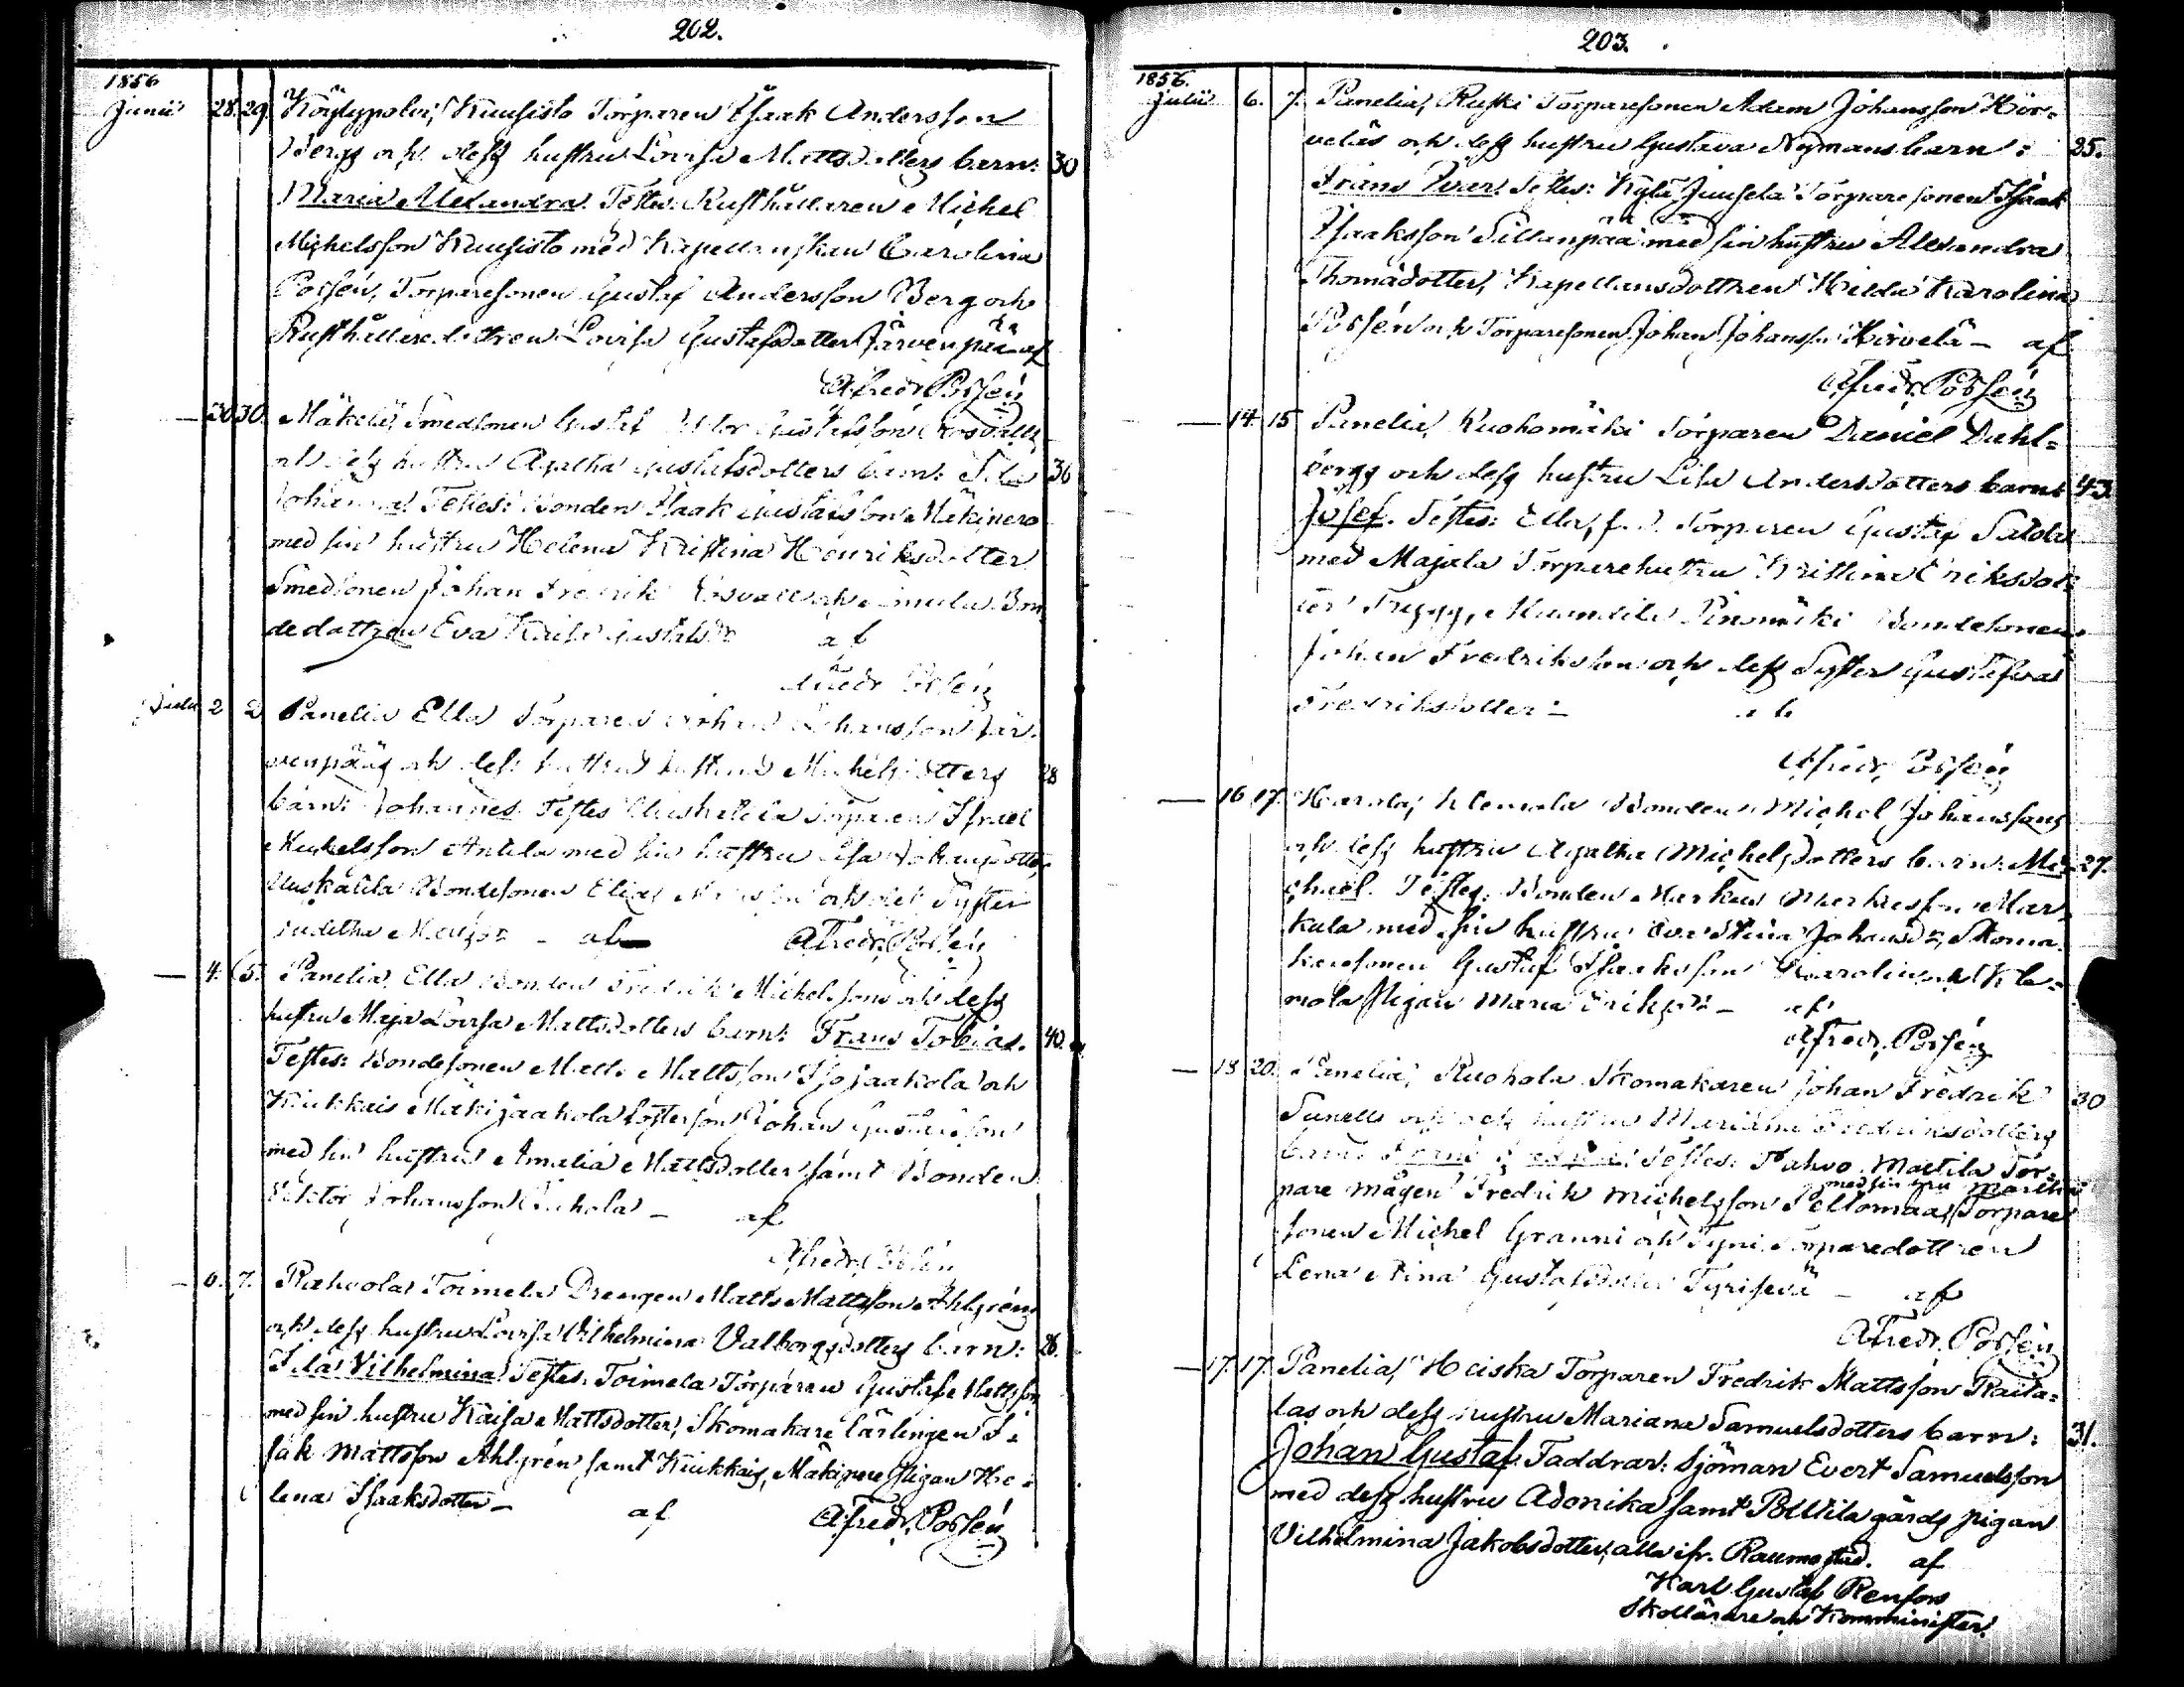 202.
1856
Junii 28. 29. Köylypolvi, Kuusisto Torparen Isaak Andersson
Bergs och dess hustru Lovisa Mattsdotters barn: 30
Maria Alexandra. Testes: Rusthållaren Michel
Michelsson Kuusisto med Kapellanskan Carolina
Possén, Torparesonen Gustaf Andersson Berg och
Rusthållaredottren Lovisa Gustafsdotter Järvenpää af
Alfredr. Possén
— 30 30. Mäkelä, Smedsonen Gustaf Gustafsson
och dess hustru Agatha Gustafsdotters barn: Ida 36
Johanna. Testes: Bonden Isaak Gustafsson Mäkinero
med sin hustru Helena Kristina Henriksdotter
Smedsonen Johan Fredrik och Bon-
dedottren Eva Kaisa Gustafsdr af
Alfredr. Possén
Julii 2 2 Panelia Ella Torparen Johan Johansson Jär-
venpääs och dess hustru Michelsdotters 28
barn: Johannes. Testes Torparen Israel
Michelsson Antila med sin hustru Lisa Johansdotter
Bondesonen Elias och dess Syster
Juditha — af Alfredr. Possén
— 4. 5. Panelia, Ella Bonden Fredrik Michelssons och dess
hustru Maja Lovisa Mattsdotters barn: Frans Tobias. 40.
Testes: Bondesonen Matts Mattsson Isojaakola och
Kiukkais Mäkijaakola Johan Gustafsson
med sin hustru Amalia Mattsdotter samt Bonden
Viktor Johansson — af
Alfredr. Possén
— 6. 7. Rahvola, Toimela Drengen Matts Mattsson Ahlgréns
och dess hustru Lovisa Vilhelmina Valborgsdotters barn: 26.
Ida Vilhelmina. Testes: Toimela Torparen Gustaf Mattsson
med sin hustru Kaisa Mattsdotter, Skomakare lärlingen I-
sak Mattsson Ahlgrén samt Kiukkais, Mäkinero Pigan He-
lena Isaksdotter — af Alfredr. Possén
203.
1856.
Julii 6. 7. Panelia, Ruski Torparesonen Adam Johansson Hör-
veläs och dess hustru Gustava Nymans barn: 25.
Frans Ivar. Testes: Kylä Juusela Torparesonen Isaak
Isaaksson Sillanpää med sin hustru Alexandra
Thomädotter, Kapellansdottren Hilda Karolina
Possén och Torparesonen Johan Johansson Hirvelä — af
Alfredr. Possén
— 14. 15 Panelia, Ruohomäki Torparen Daniel Dahl-
bergs och dess hustru Lisa Andersdotters barn: 43.
Josef. Testes: Ella, f.d. Torparen Gustaf Salola
med Majala Torparehustru Kristina Eriksdot-
ter Trygg, Pinomäki Bondesonen
Johan Fredriksson och dess Syster Gustafva
Fredriksdotter — af
Alfredr. Possén
— 16 17. Harola, Klemola Bonden Michel Johanssons
och dess hustru Agatha Michelsdotters barn: Mi- 27.
chael. Testes: Bonden Markus Markusson Mar-
kula med sin hustru Eva Stina Johansdr, Skoma-
karesonen Gustaf Isaaksson och Kle-
mola Pigan Maria Eriksdr — af
Alfredr. Possén
— 18 20. Panelia, Ruohola Skomakaren Johan Fredrik 30
Sanells och dess hustru Mariana Fredriksdotters
barn: Testes: Pahvo Mattila Tor-
pare mågen Fredrik Michelsson Peltomaa, med sin hru Torpare
sonen Michel Granni och Torparedottren
Lena Stina Gustafsdotter Tyrisevä — af
Alfredr. Possén
— 17. 17. Panelia, Heiska Torparen Fredrik Mattsson Raita-
las och dess hustru Mariana Samuelsdotters barn: 31.
Johan Gustaf. Faddrar: Sjöman Evert Samuelsson
med dess hustru Adonika samt Polttila gårds pigan
Vilhelmina Jakobsdotter, alla ifr. Raumo stad. af
Karl Gustaf Renfors
Skollärare och Komminister.